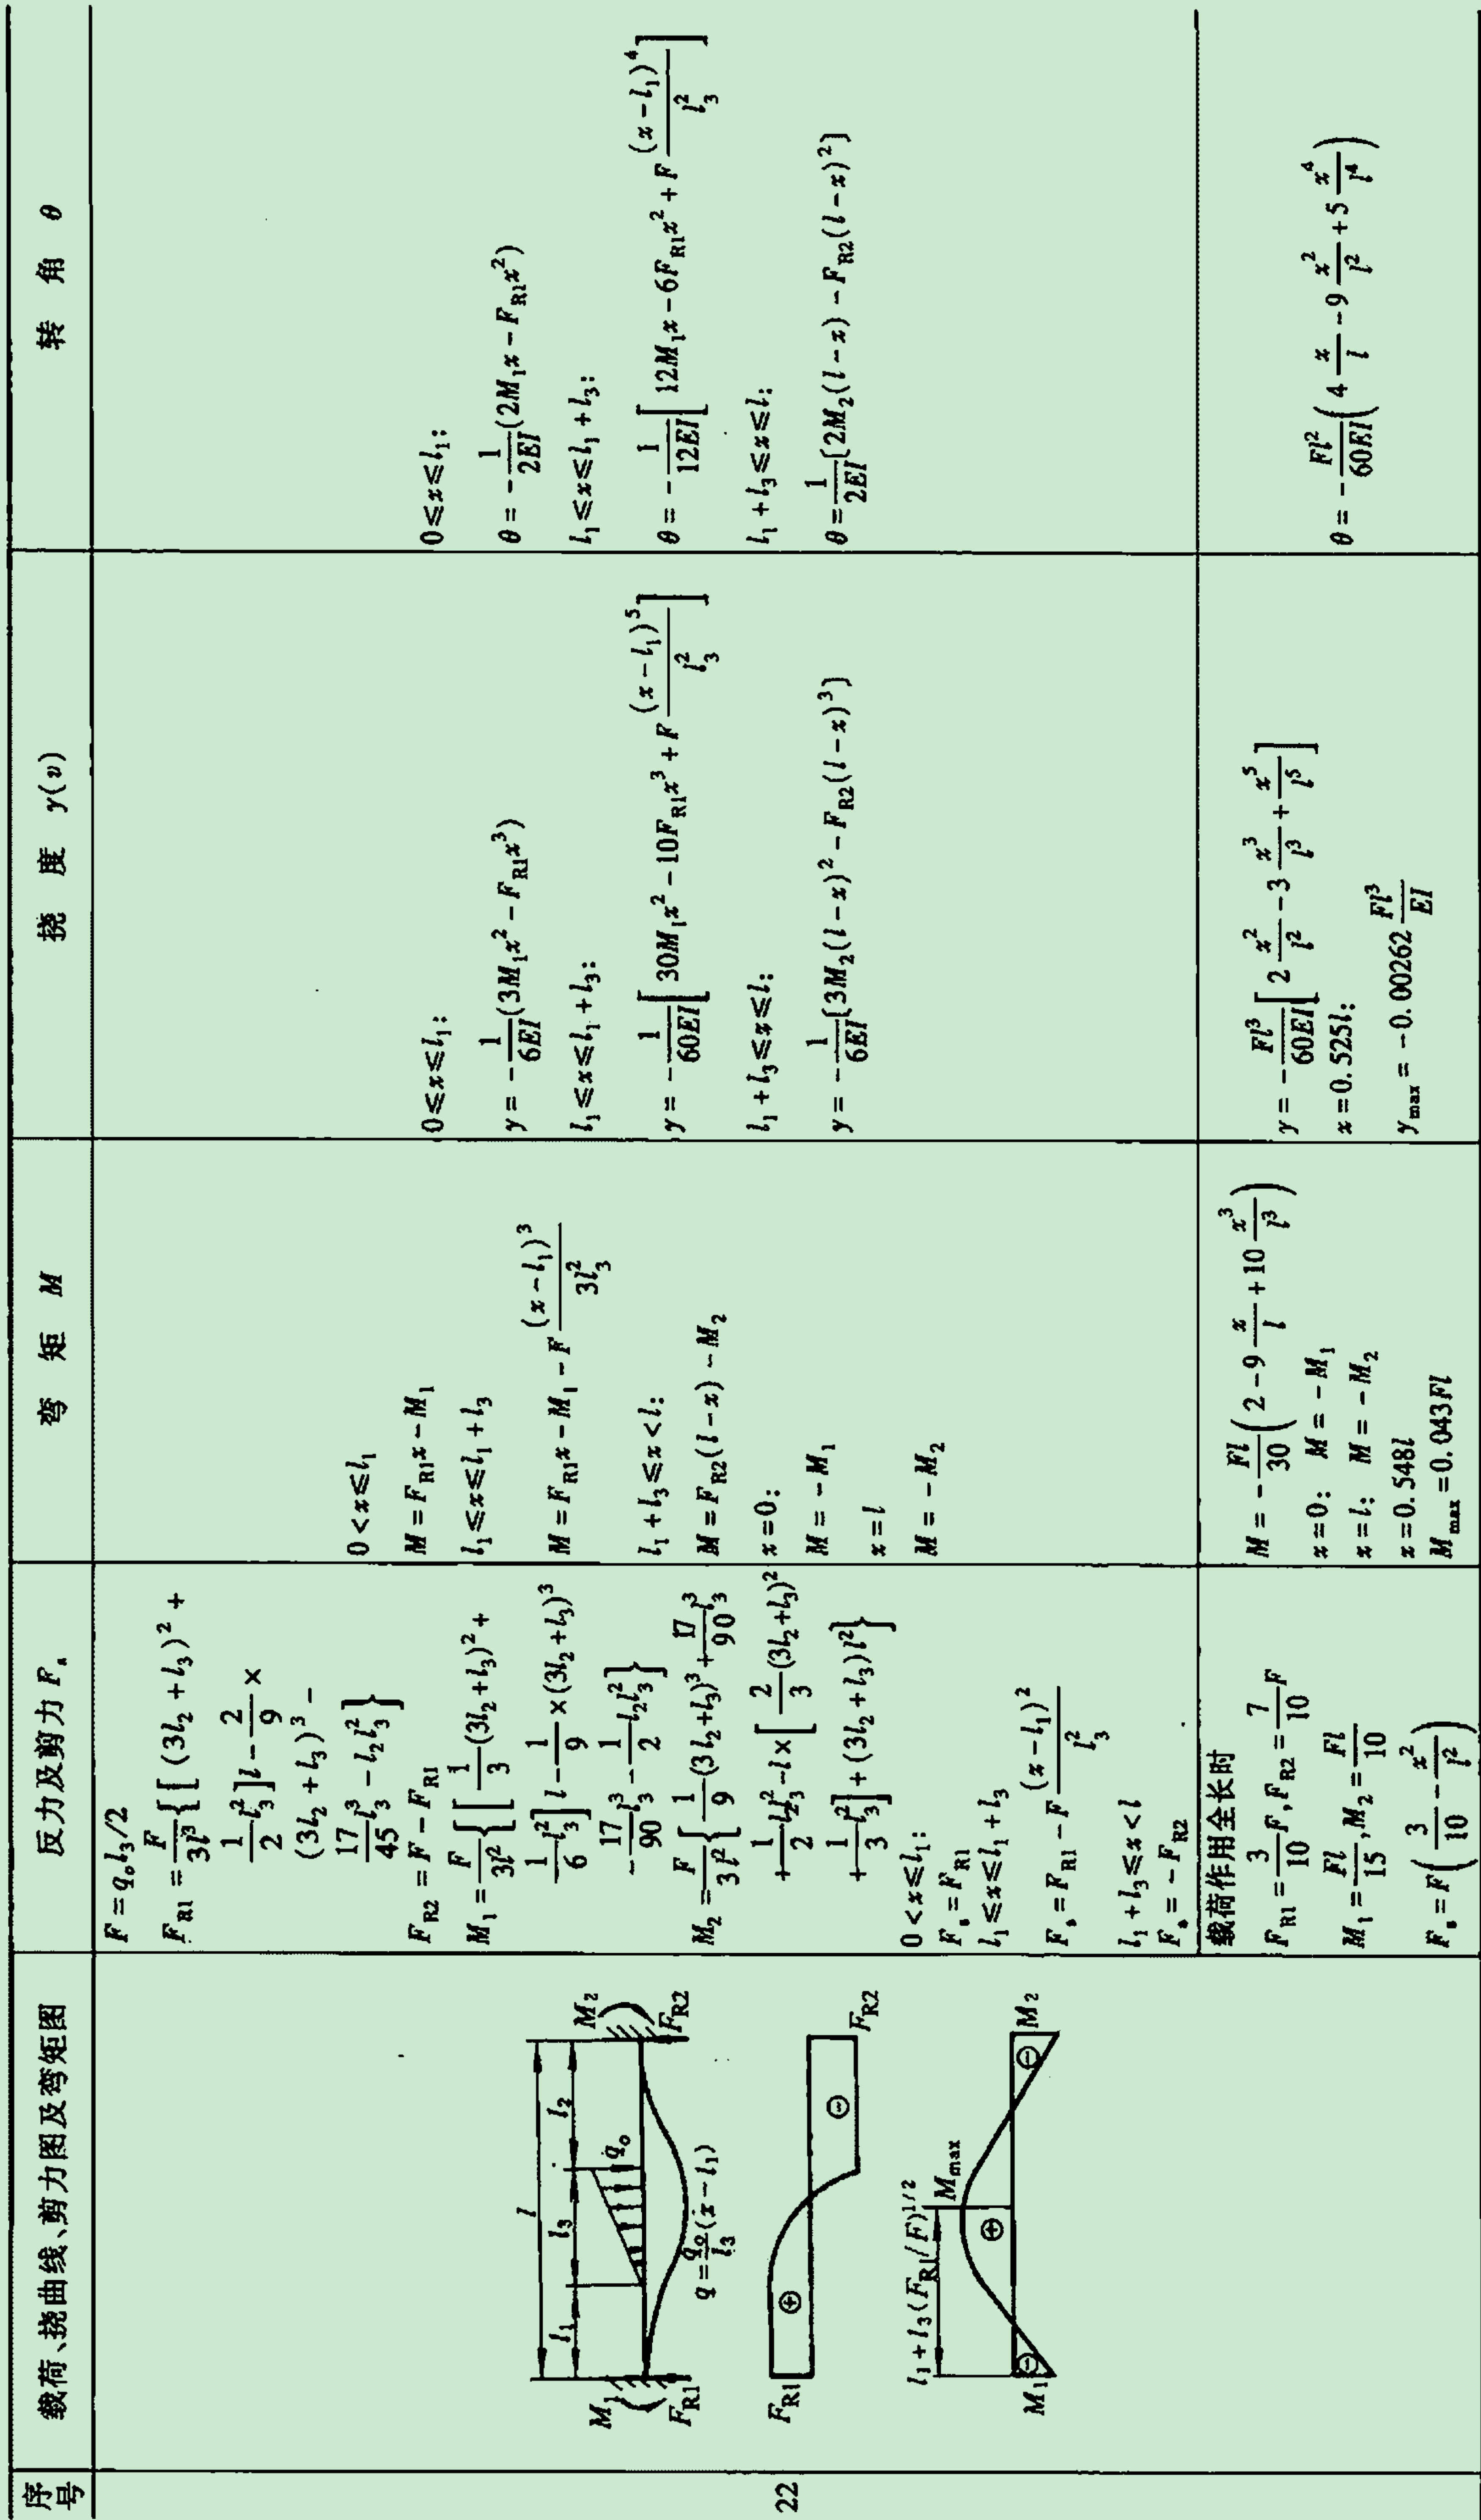 序号
载荷、挠曲线、剪力图及弯矩图
反力及剪力 Fₛ
弯 矩 M
挠 度 y(v)
转 角 θ
22
l
l₁ l₃ l₂
M₁ q₀ M₂
F_R1 F_R2
q=q₀/l₃(x-l₁)
F_R1 ⊕ ⊖ F_R2
l₁+l₃(F_R1/F)^1/2
M_max
M₁ ⊖ ⊕ ⊖ M₂
F=q₀l₃/2
F_R1=F/3l³{[(3l₂+l₃)²+
1/2 l₃²]l-2/9×
(3l₂+l₃)³-
17/45 l₃³-l₂l₃²}
F_R2=F-F_R1
M₁=F/3l²{[1/3(3l₂+l₃)²+
1/6 l₃²]l-1/9×(3l₂+l₃)³
-17/90 l₃³-1/2 l₂l₃²}
M₂=F/3l²{1/9(3l₂+l₃)³+17/90 l₃³
+1/2 l₂l₃²-l×[2/3(3l₂+l₃)²
+1/3 l₃²]+(3l₂+l₃)l²}
0<x≤l₁:
Fₛ=F_R1
l₁≤x≤l₁+l₃
Fₛ=F_R1-F(x-l₁)²/l₃²
l₁+l₃≤x<l
Fₛ=-F_R2
0<x≤l₁
M=F_R1x-M₁
l₁≤x≤l₁+l₃
M=F_R1x-M₁-F(x-l₁)³/3l₃²
l₁+l₃≤x<l:
M=F_R2(l-x)-M₂
x=0:
M=-M₁
x=l
M=-M₂
0≤x≤l₁:
y=-1/6EI(3M₁x²-F_R1x³)
l₁≤x≤l₁+l₃:
y=-1/60EI[30M₁x²-10F_R1x³+F(x-l₁)⁵/l₃²]
l₁+l₃≤x≤l:
y=-1/6EI[3M₂(l-x)²-F_R2(l-x)³]
0≤x≤l₁:
θ=-1/2EI(2M₁x-F_R1x²)
l₁≤x≤l₁+l₃:
θ=-1/12EI[12M₁x-6F_R1x²+F(x-l₁)⁴/l₃²]
l₁+l₃≤x≤l:
θ=1/2EI[2M₂(l-x)-F_R2(l-x)²]
载荷作用全长时
F_R1=3/10F,F_R2=7/10F
M₁=Fl/15,M₂=Fl/10
Fₛ=F(3/10-x²/l²)
M=-Fl/30(2-9x/l+10x³/l³)
x=0: M=-M₁
x=l: M=-M₂
x=0.548l
M_max=0.043Fl
y=-Fl³/60EI[2x²/l²-3x³/l³+x⁵/l⁵]
x=0.525l:
y_max=-0.00262Fl³/EI
θ=-Fl²/60EI(4x/l-9x²/l²+5x⁴/l⁴)